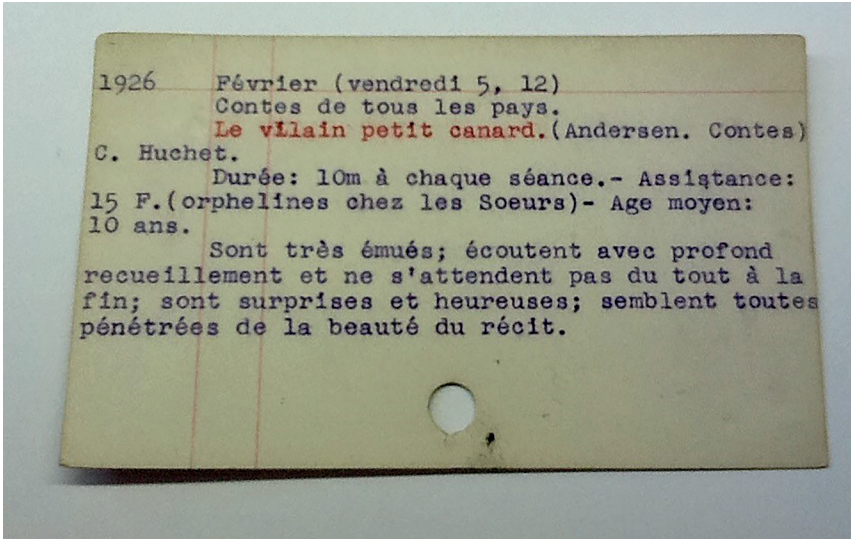 1926 Février (vendredi 5, 12)
Contes de tous les pays.
Le vilain petit canard.(Andersen. Contes)
C. Huchet.
Durée: 10m à chaque séance.- Assistance:
15 F.(orphelines chez les Soeurs)- Age moyen:
10 ans.
Sont très émués; écoutent avec profond
recueillement et ne s'attendent pas du tout à la
fin; sont surprises et heureuses; semblent toutes
pénétrées de la beauté du récit.